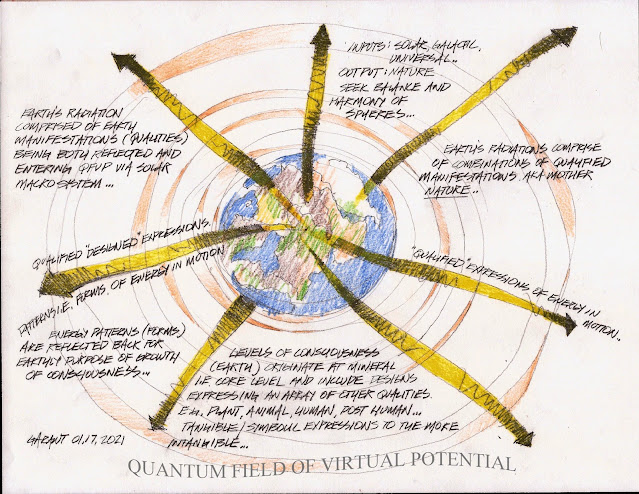 INPUTS: SOLAR, GALACTIC,
UNIVERSAL..
OUTPUT: NATURE
SEEK BALANCE AND
HARMONY OF
SPHERES...
EARTH'S RADIATION
COMPRISED OF EARTH
MANIFESTATIONS (QUALITIES)
BEING BOTH REFLECTED AND
ENTERING QFVP VIA SOLAR
MACRO SYSTEM...
EARTH'S RADIATIONS COMPRISE
OF COMBINATIONS OF QUALIFIED
MANIFESTATIONS. AKA MOTHER
NATURE..
QUALIFIED "DESIGNED" EXPRESSIONS.
PATTERNS I.E. FORMS. OF ENERGY IN MOTION
"QUALIFIED" EXPRESSIONS OF ENERGY IN
MOTION..
ENERGY PATTERNS (FORMS)
ARE REFLECTED BACK FOR
EARTHLY PURPOSE OF GROWTH
OF CONSCIOUSNESS...
LEVELS OF CONSCIOUSNESS
(EARTH) ORIGINATE AT MINERAL
I.E. CORE LEVEL AND INCLUDE DESIGNS
EXPRESSING AN ARRAY OF OTHER QUALITIES.
E.G. PLANT, ANIMAL, HUMAN, POST HUMAN...
TANGIBLE/SYMBOLIC EXPRESSIONS TO THE MORE
INTANGIBLE...
GARAUT 01.17.2021
QUANTUM FIELD OF VIRTUAL POTENTIAL